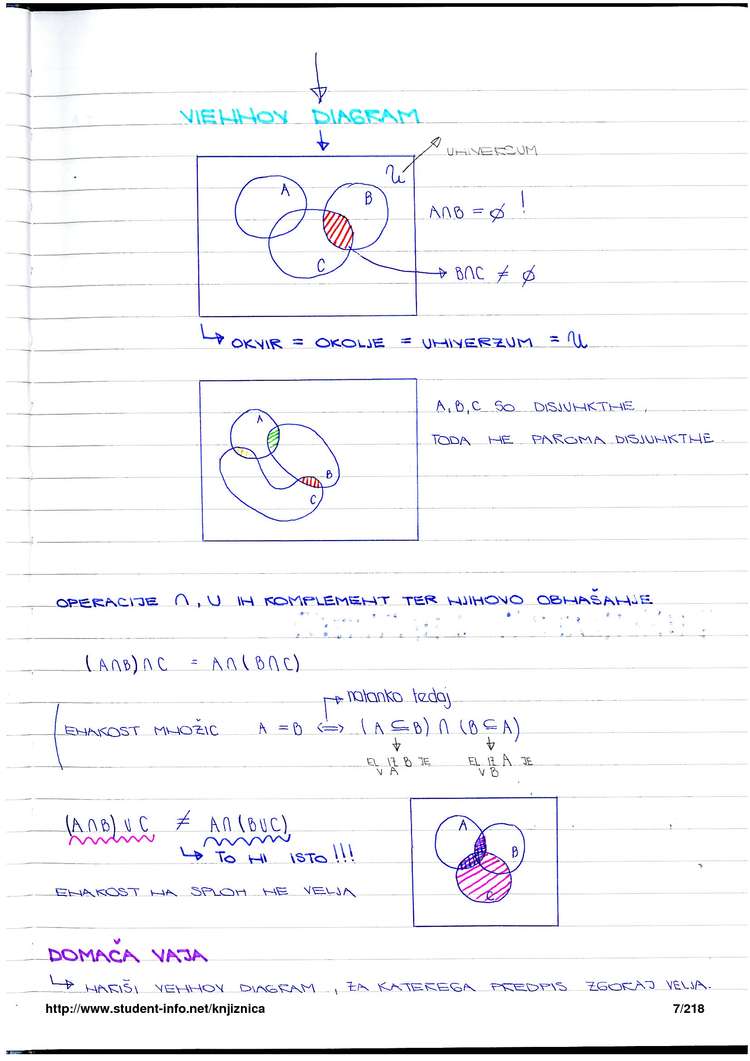 VIENNOV DIAGRAM
UNIVERZUM
U
A
B
C
A∩B = ∅ !
B∩C ≠ ∅
↳ OKVIR = OKOLJE = UNIVERZUM = U
A
B
C
A, B, C SO DISJUNKTNE,
TODA NE PAROMA DISJUNKTNE
OPERACIJE ∩, U IN KOMPLEMENT TER NJIHOVO OBNAŠANJE
(A∩B)∩C = A∩(B∩C)
natanko tedaj
ENAKOST MNOŽIC A = B ⇔ (A ⊆ B) ∩ (B ⊆ A)
EL IZ B JE V A
EL IZ A JE V B
(A∩B) ∪ C ≠ A∩(B∪C)
↳ TO NI ISTO!!!
ENAKOST NA SPLOH NE VELJA
A
B
C
DOMAČA VAJA
↳ NARIŠI VENNOV DIAGRAM, ZA KATEREGA PREDPIS ZGORAJ VELJA.
http://www.student-info.net/knjiznica 7/218